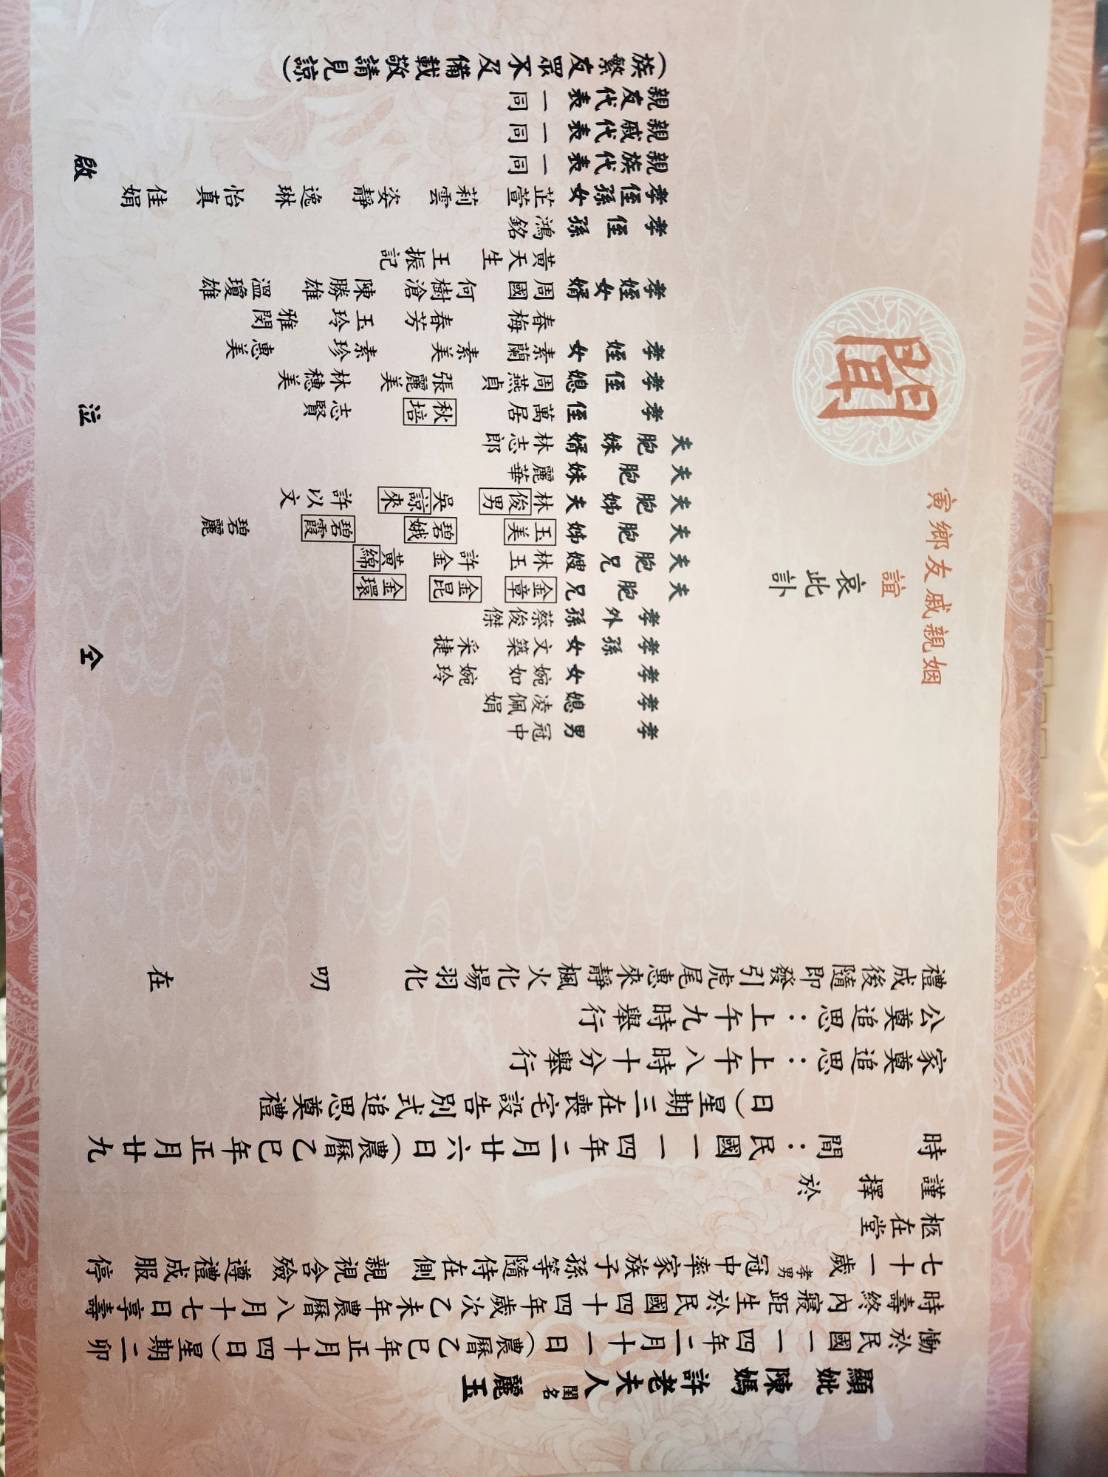 顯妣陳媽許老夫人閨名麗玉
慟於民國一一四年二月十一日(農曆乙巳年正月十四日)星期二卯
時壽終內寢距生於民國四十四年歲次乙未年農曆八月十七日享壽
七十一歲孝男冠中率家族子孫等隨侍在側親視含殮遵禮成服停
柩在堂
謹擇於
時間：民國一一四年二月廿六日(農曆乙巳年正月廿九
日)星期三在喪宅設告別式追思奠禮
家奠追思：上午八時十分舉行
公奠追思：上午九時舉行
禮成後隨即發引虎尾惠來靜楓火化場羽化 叨在
姻親戚友鄉寅
誼
哀此訃
聞
孝男 冠中
孝媳 凌佩娟
孝女 婉如 婉玲
孝孫女 文築 采捷
孝外孫 蔡俊傑
夫胞兄 金章 金昆 金環
夫胞兄嫂 林玉 許金 黃綿
夫胞姊 玉美 碧娥 碧霞 碧麗
夫胞姊夫 林俊男 吳諒來 許以文
夫胞妹 麗華
夫胞妹婿 林志郎
孝侄 萬居 秋培 志賢
孝侄媳 周燕貞 張麗美 林穗美
孝姪女 素蘭 素美 素珍 惠美
春梅 春芳 玉玲 雅閔
孝姪女婿 周國 何樹滄 陳勝雄 溫瓊雄
黃天生 王振記
孝侄孫 鴻銘
孝侄孫女 芷萱 莉雲 姿靜 逸琳 怡真 佳娟
親族代表一同
親戚代表一同
親友代表一同
(族繁友眾不及備載敬請見諒)
仝 泣 啟